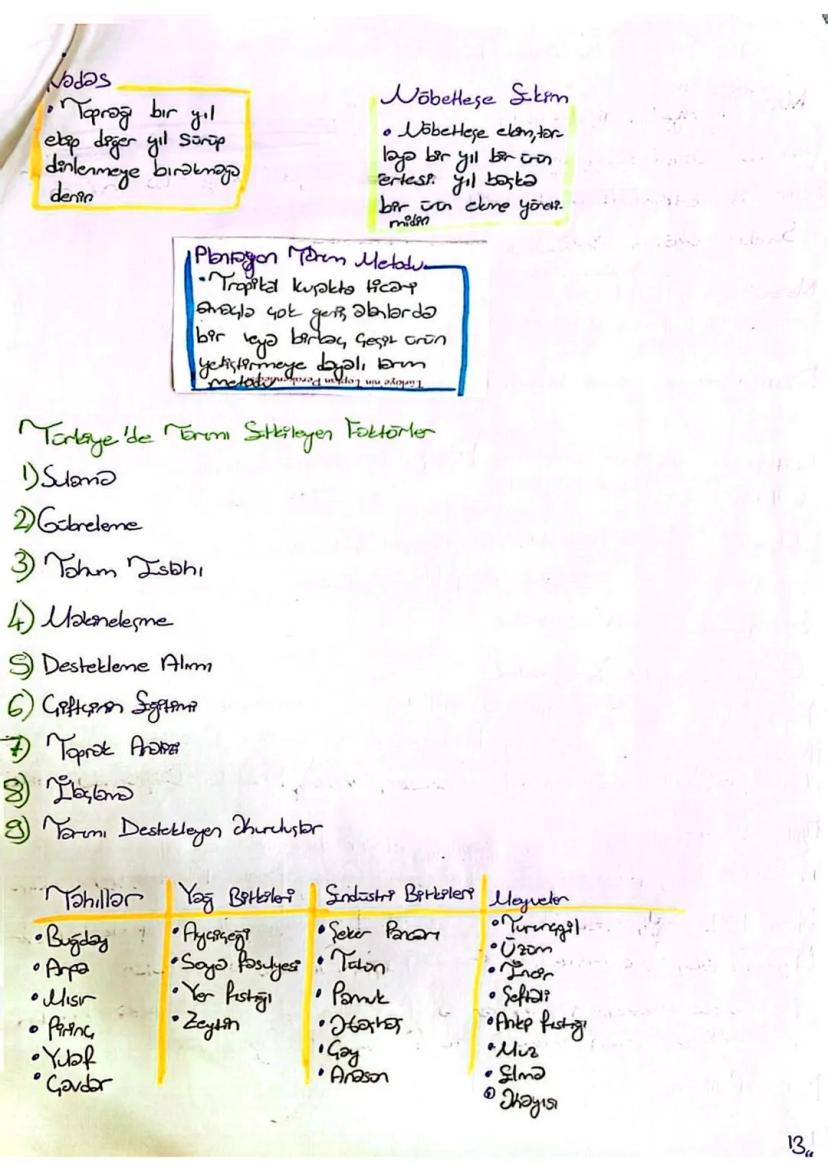 Nadas
• Toprağı bir yıl
ekip diğer yıl sürüp
dinlenmeye bırakmaya
denir
Nöbetleşe Ekim
• Nöbetleşe ekim, tar
laya bir yıl bir ürün
ertesi yıl başka
bir ürün ekme yönte
midir
Plantasyon Tarım Metodu
• Tropikal kuşakta ticari
amaçla çok geniş alanlarda
bir veya birkaç çeşit ürün
yetiştirmeye dayalı tarım
metodu
Türkiye'de Tarımı Etkileyen Faktörler
1) Sulama
2) Gübreleme
3) Tohum Islahı
4) Makineleşme
5) Destekleme Alımı
6) Çiftçinin Eğitimi
7) Toprak Analizi
8) İlaçlama
9) Tarımı Destekleyen Kuruluşlar
Tahıllar Yağ Bitkileri Endüstri Bitkileri Meyveler
• Buğday • Ayçiçeği • Şeker Pancarı • Turunçgil
• Arpa • Soya Fasulyesi • Tütün • Üzüm
• Mısır • Yer Fıstığı • Pamuk • İncir
• Pirinç • Zeytin • Haşhaş • Şeftali
• Yulaf • Çay • Antep fıstığı
• Çavdar • Anason • Muz
• Elma
• Kayısı
13